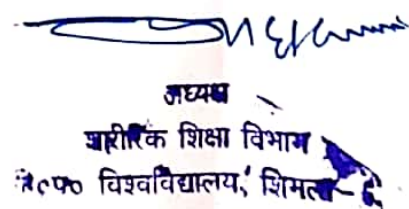 अध्यक्ष
शारीरिक शिक्षा विभाग
हि०प्र० विश्वविद्यालय, शिमला-५